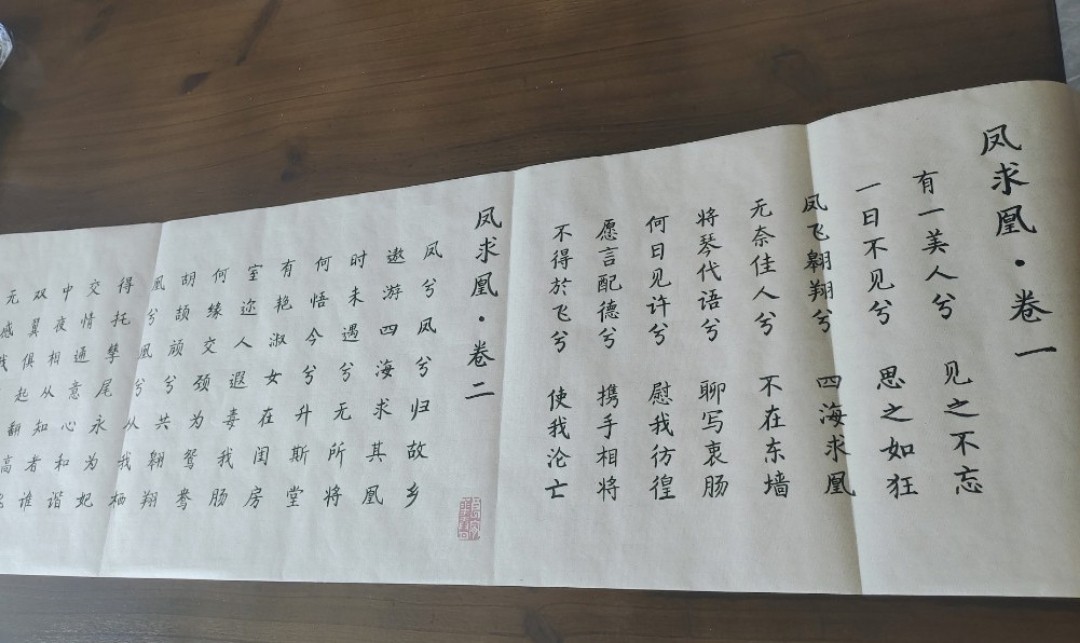 凤求凰·卷一
有一美人兮 见之不忘
一日不见兮 思之如狂
凤飞翱翔兮 四海求凰
无奈佳人兮 不在东墙
将琴代语兮 聊写衷肠
何日见许兮 慰我彷徨
愿言配德兮 携手相将
不得於飞兮 使我沦亡
凤求凰·卷二
凤兮凤兮归故乡
遨游四海求其凰
时未遇兮无所将
何悟今兮升斯堂
有艳淑女在闺房
室迩人遐毒我肠
何缘交颈为鸳鸯
胡颉颃兮共翱翔
凰兮凰兮从我栖
得托孳尾永为妃
交情通意心和谐
中夜相从知者谁
双翼俱起翻高
无感我